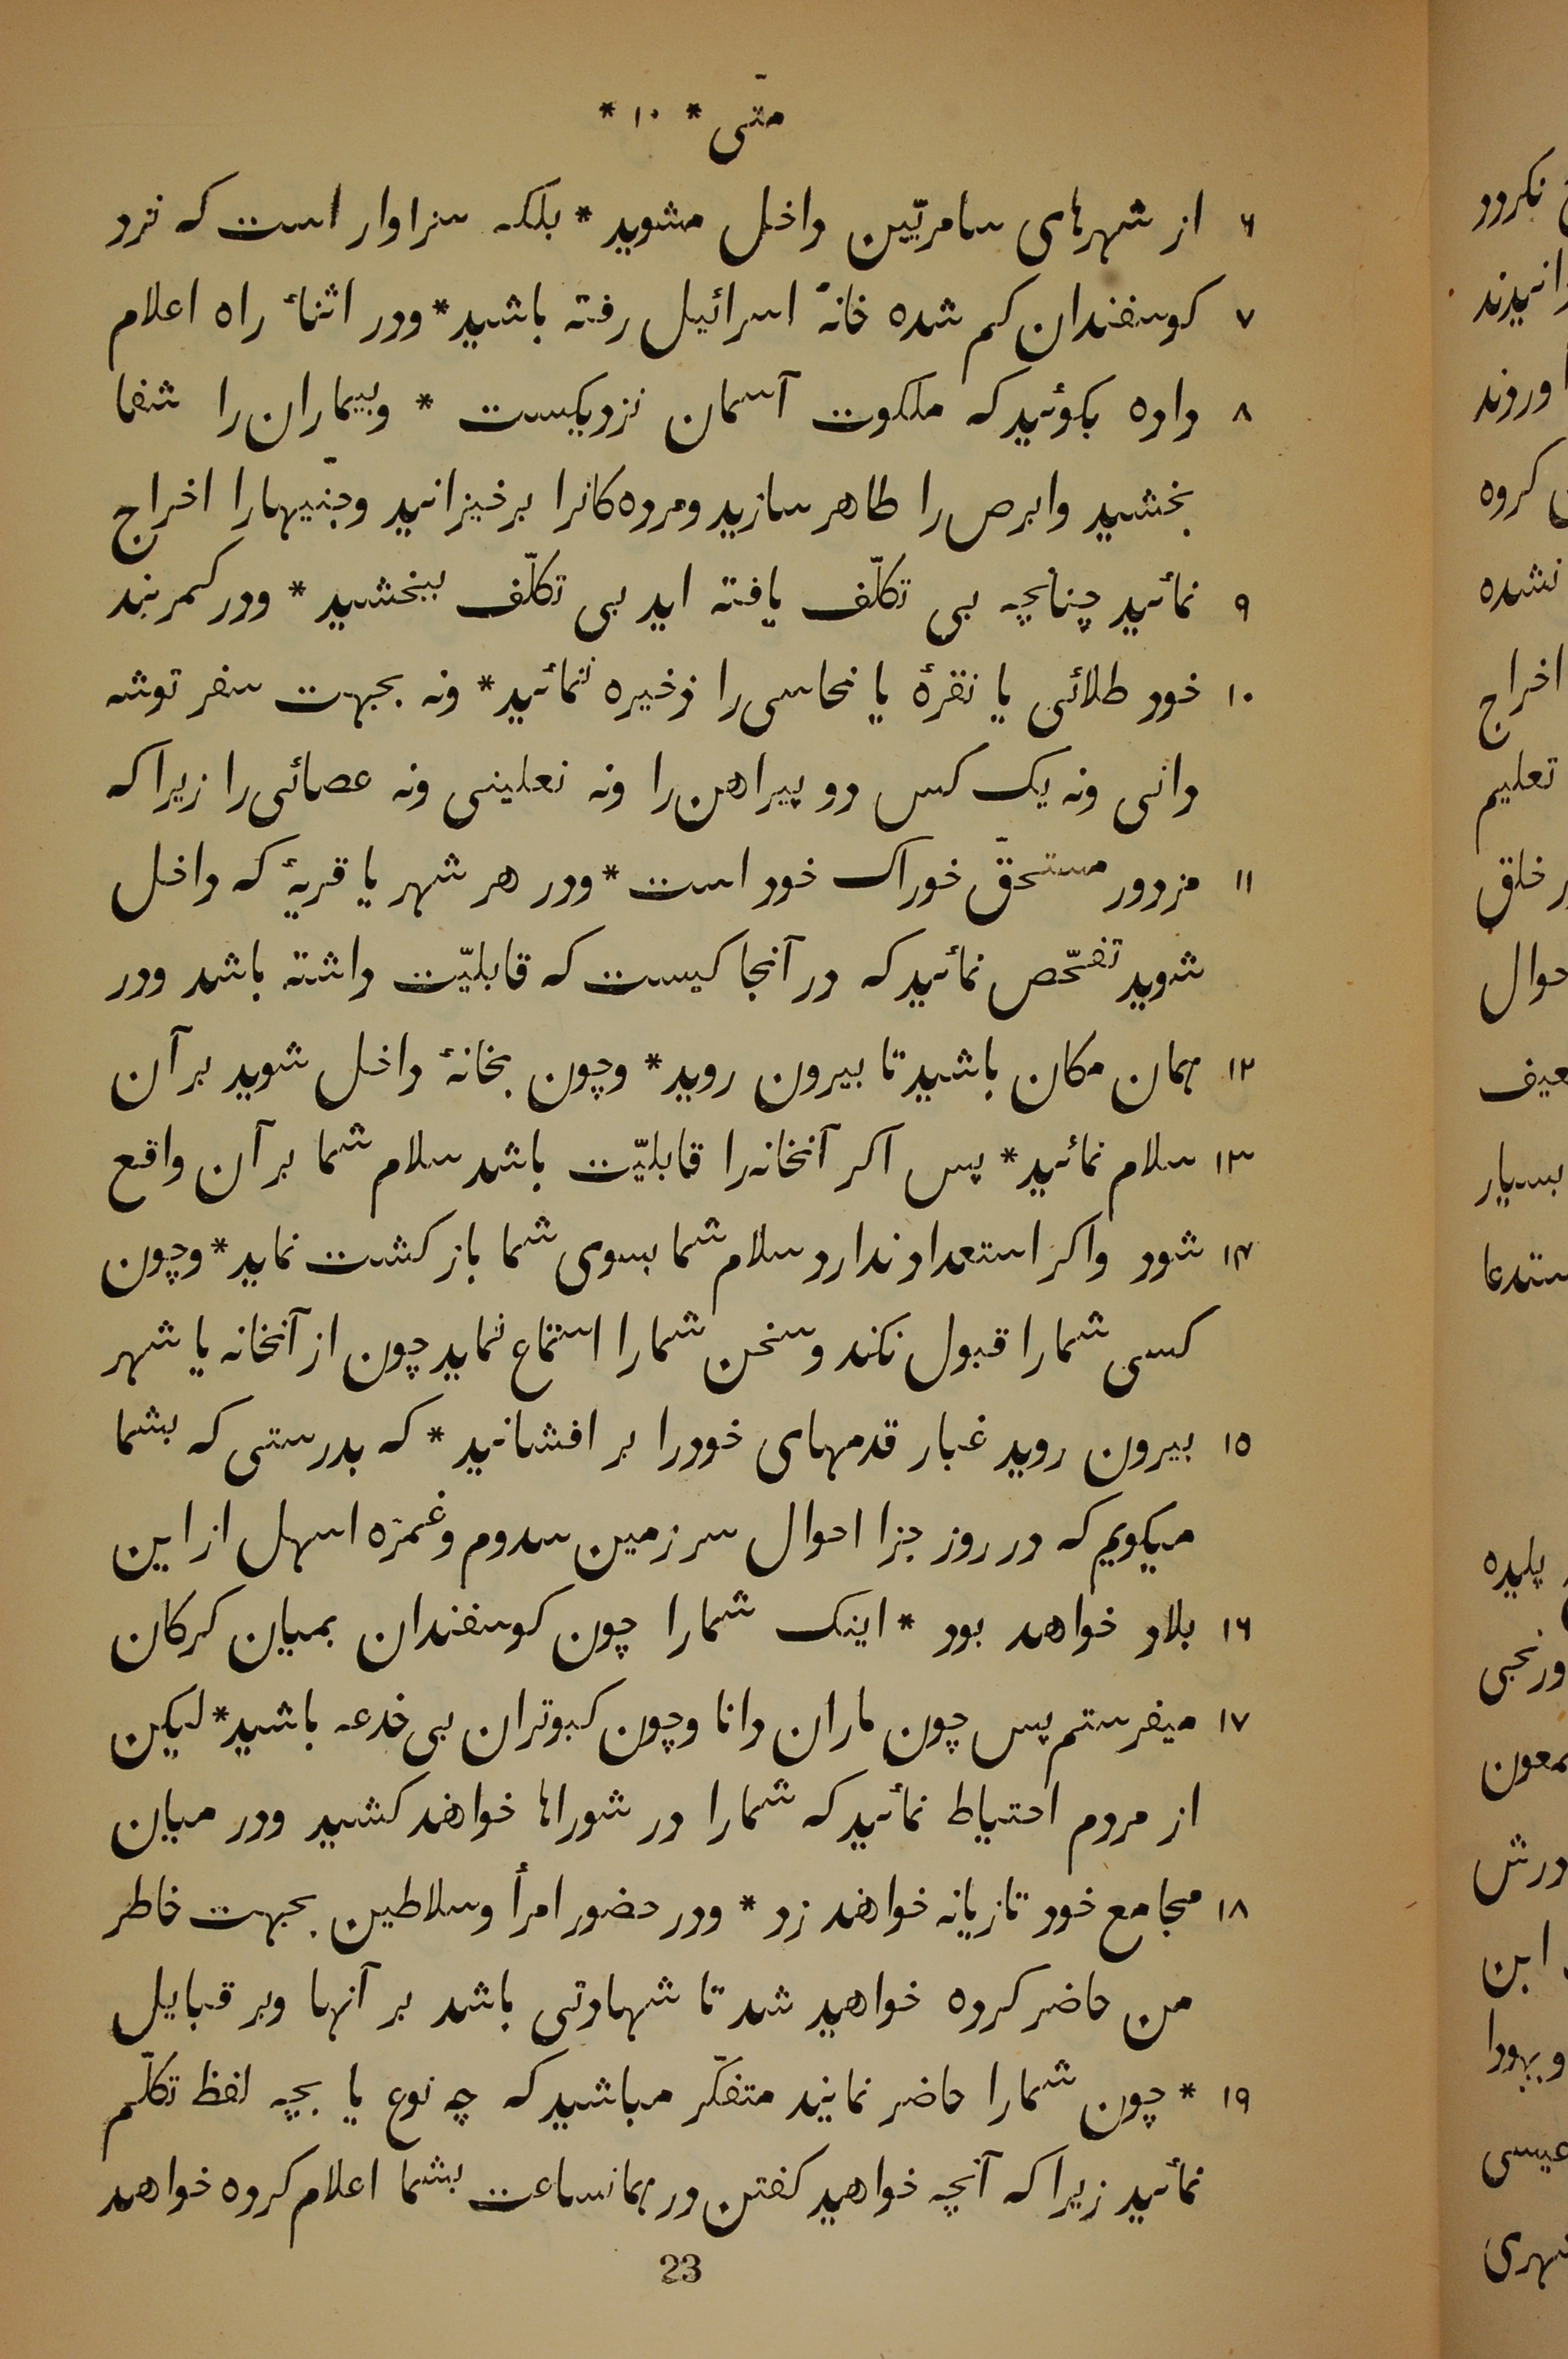 متّی * ۱۰ *
۶ از شهرهای سامریّین داخل مشوید * بلکه سزاوار است که نزد
۷ کوسفندان کم شده خانهٔ اسرائیل رفته باشید * ودر اثنأ راه اعلام
۸ داده بکوئید که ملکوت آسمان نزدیکست * وبیماران را شفا
بخشید وابرص را طاهر سازید ومرده‌کانرا برخیزانید وجنّیهارا اخراج
۹ نمائید چنانچه بی تکلّف یافته اید بی تکلّف ببخشید * ودر کمربند
۱۰ خود طلائی یا نقرهٔ یا نحاسی را ذخیره ننمائید * ونه بجهت سفر توشه
دانی ونه یک کس دو پیراهن را ونه نعلینی ونه عصائی را زیرا که
۱۱ مزدور مستحقّ خوراک خود است * ودر هر شهر یا قریهٔ که داخل
شوید تفحّص نمائید که در آنجا کیست که قابلیّت داشته باشد ودر
۱۲ همان مکان باشید تا بیرون روید * وچون بخانهٔ داخل شوید بر آن
۱۳ سلام نمائید * پس اکر آنخانه‌را قابلیّت باشد سلام شما بر آن واقع
۱۴ شود واکر استعداد ندارد سلام شما بسوی شما باز کشت نماید * وچون
کسی شمارا قبول نکند وسخن شمارا استماع ننماید چون از آنخانه یا شهر
۱۵ بیرون روید غبار قدمهای خودرا بر افشانید * که بدرستی که بشما
میکویم که در روز جزا احوال سر زمین سدوم وغمزه اسهل از این
۱۶ بلاد خواهد بود * اینک شمارا چون کوسفندان بمیان کرکان
۱۷ میفرستم پس چون ماران دانا وچون کبوتران بی خدعه باشید * لیکن
از مردم احتیاط نمائید که شمارا در شوراها خواهند کشید ودر میان
۱۸ مجامع خود تازیانه خواهند زد * ودر حضور امرأ وسلاطین بجهت خاطر
من حاضر کرده خواهید شد تا شهادتی باشد بر آنها وبر قبایل
۱۹ * چون شمارا حاضر نمایند متفکّر مباشید که چه نوع یا بچه لفظ تکلّم
نمائید زیرا که آنچه خواهید کفتن در همانساعت بشما اعلام کرده خواهد
23
نکردد
اوردند
کروه
نشده
اخراج
تعلیم
خلق
بسیار
پلیده
ابن
ویهودا